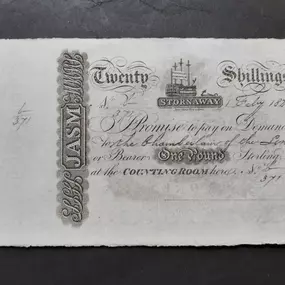 Twenty Shillings
STORNAWAY
Feby 182
I Promise to pay on Demand
to the Chamberlain of the
or Bearer One Pound Sterling
at the COUNTING ROOM here
371
371
JASM